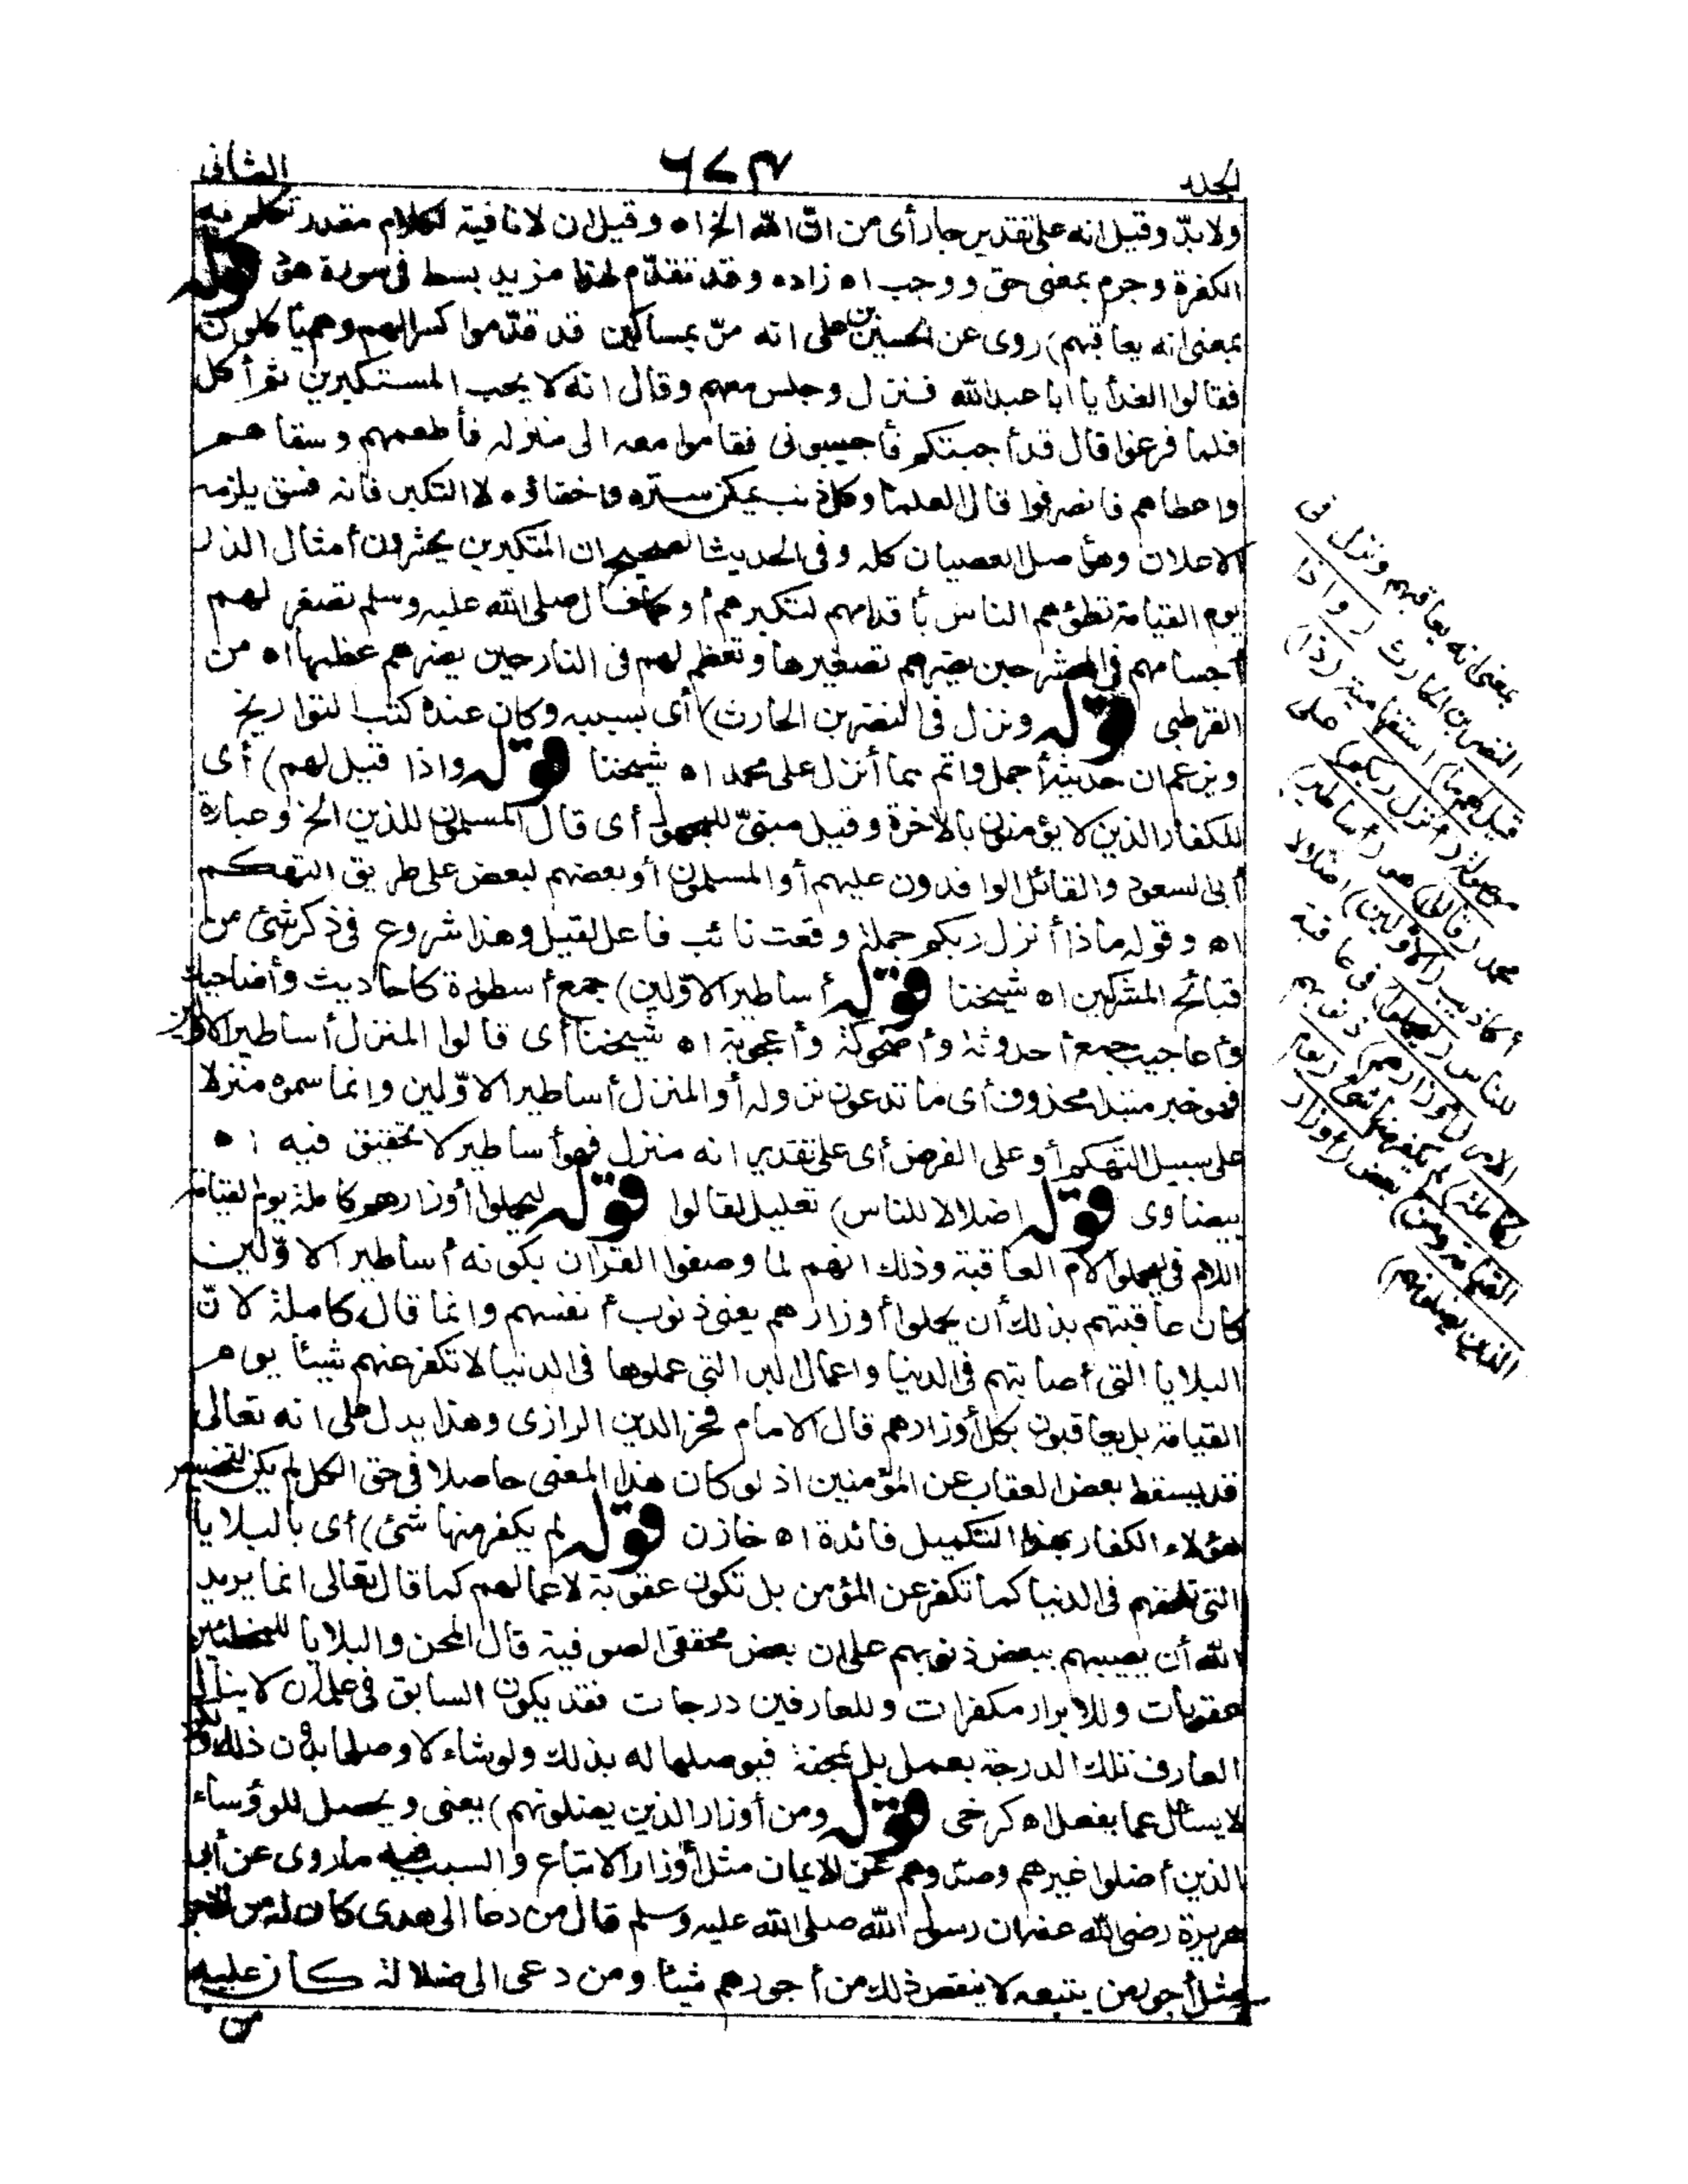 الجلد
٦٧٣
الثانى
ولا بدّ وقيل انه على تقدير جار أى من انّ الله الخ اه وقيل ان لا نافية لكلام مقدر تكلم به
الكفرة وجرم بمعنى حق ووجب اه زاده وقد تقدّم لهذا مزيد بسط فى سورة هود قوله
بمعنى انه يعاقبهم) روى عن الحسين بن على انه مرّ بمساكين قد قدّموا كسرا لهم وهم يأكلون
فقالوا الغدأ يا ابا عبد الله فنزل وجلس معهم وقال انه لا يحب المستكبرين ثم أكل
فلما فرغوا قال قد أجبتكم فأجيبونى فقاموا معه الى منزله فأطعمهم وسقاهم
واعطاهم فانصرفوا قال العلما وكل ذنب يمكن ستره واخفاؤه الا التكبر فانه فسق يلزمه
الاعلان وهو أصل العصيان كله وفى الحديث الصحيح ان المتكبرين يحشرون أمثال الذر
يوم القيامة تطؤهم الناس بأقدامهم لتكبرهم أو كما قال صلى الله عليه وسلم تصغر لهم
أجسامهم فى المحشر حين يضرهم تصغيرها وتعظم لهم فى النار حين يضرهم عظمها اه من
القرطبى قوله ونزل فى النضر بن الحارث) أى بسببه وكان عنده كتب التواريخ
ويزعم ان حديثه أجمل واتم مما أنزل على محمد اه شيخنا قوله واذا قيل لهم) أى
للكفار الذين لا يؤمنون بالآخرة وقيل مبنىّ للمجهول أى قال المسلمون للذين الخ وعبارة
أبى السعود والقائل الوافدون عليهم أو المسلمون أو بعضهم لبعض على طريق التهكم
اه وقوله ماذا أنزل ربكم جملة وقعت نائب فاعل لقيل وهذا شروع فى ذكر شئ من
قبائح المشركين اه شيخنا قوله أساطير الاوّلين) جمع أسطورة كاحاديث وأضاحيك
وأعاجيب جمع أحدوثة وأضحوكة وأعجوبة اه شيخنا أى قالوا المنزل أساطير الاولين
فهو خبر مبتدا محذوف أى ما تدعون نزوله أو المنزل أساطير الاوّلين وانما سموه منزلا
على سبيل التهكم أو على الفرض أى على تقدير انه منزل فهو أساطير لا تحقيق فيه اه
بيضاوى قوله اضلالا للناس) تعليل لقالوا قوله ليحملوا أوزارهم كاملة يوم القيامة
اللام فى ليحملوا لام العاقبة وذلك انهم لما وصفوا القرآن بكونه أساطير الاوّلين
كان عاقبتهم بذلك أن يحملوا أوزارهم يعنى ذنوب أنفسهم وانما قال كاملة لانّ
البلايا التى أصابتهم فى الدنيا واعمال البر التى عملوها فى الدنيا لا تكفر عنهم شيئا يوم
القيامة بل يعاقبون بكل أوزارهم قال الامام فخر الدين الرازى وهذا يدل على انه تعالى
قد يسقط بعض العقاب عن المؤمنين اذ لو كان هذا المعنى حاصلا فى حق الكل لم يكن لتخصيص
هؤلاء الكفار بهذا التكميل فائدة اه خازن قوله لم يكفر منها شئ) أى بالبلايا
التى تلحقهم فى الدنيا كما تكفر عن المؤمن بل تكون عقوبة لاعمالهم كما قال تعالى انما يريد
الله أن يصيبهم ببعض ذنوبهم على ان بعض محققى الصوفية قال المحن والبلايا للمخطئين
عقوبات وللابرار مكفرات وللعارفين درجات فقد يكون السابق فى علمه أن لا ينال
العارف تلك الدرجة بعمل بل بمحنة فيوصلها له بذلك ولو شاء لاوصلها بدون ذلك ولكن
لا يسأل عما يفعل اه كرخى قوله ومن أوزار الذين يضلونهم) يعنى ويحصل للرؤساء
الذين أضلوا غيرهم وصدّوهم عن الايمان مثل أوزار الاتباع والسبب فيه ما روى عن أبى
هريرة رضى الله عنه ان رسول الله صلى الله عليه وسلم قال من دعا الى هدى كان له من الاجر
مثل أجور من يتبعه لا ينقص ذلك من أجورهم شيئا ومن دعى الى ضلالة كان عليه
من
بمعنى انه يعاقبهم ونزل فى
النضر بن الحارث (واذا
قيل لهم ما) استفهامية (ذا)
موصولة (أنزل ربكم) على
محمد (قالوا) هو (أساطير)
أكاذيب (الاولين) اضلالا
للناس (ليحملوا) فى عاقبة
الامر (أوزارهم) ذنوبهم
(كاملة) لم يكفر منها شئ (يوم
القيامة ومن) بعض (أوزار
الذين يضلونهم)